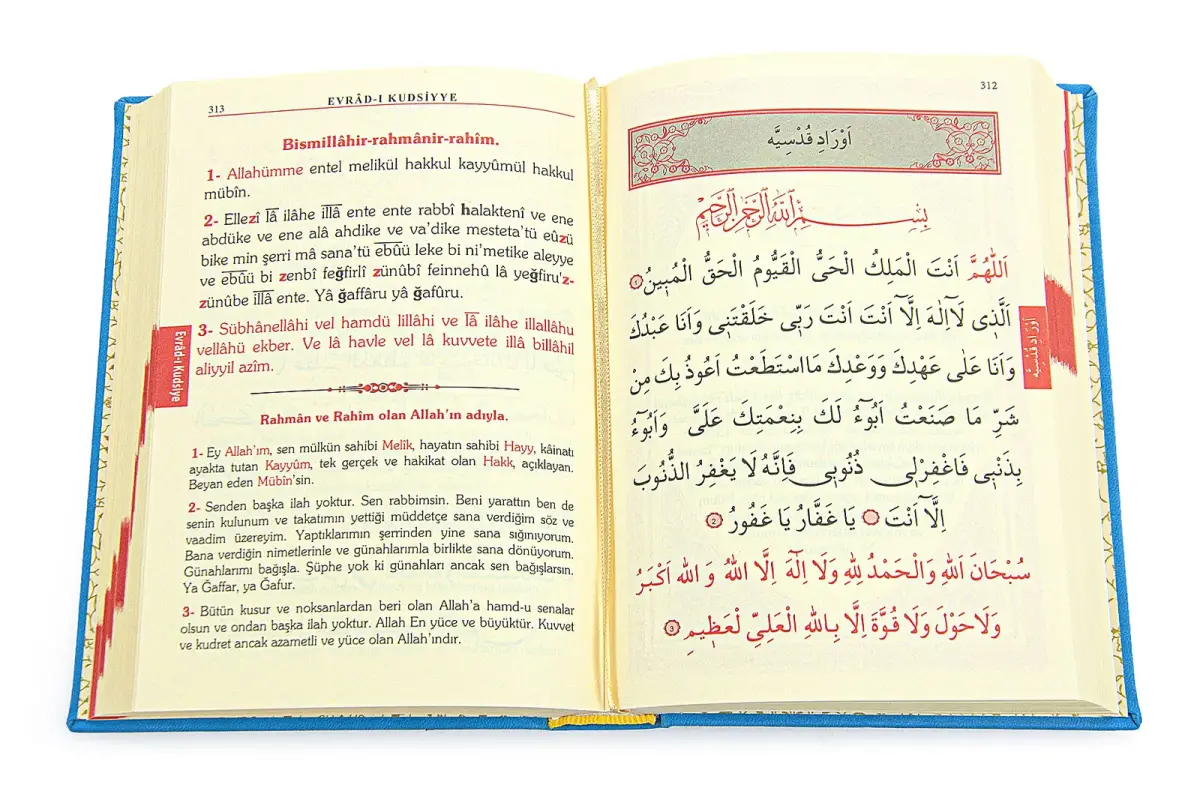 312
اَوْرَادِ قُدْسِيَّه
بِسْمِ اللّٰهِ الرَّحْمٰنِ الرَّحٖيمِ
اَللّٰهُمَّ اَنْتَ الْمَلِكُ الْحَىُّ الْقَيُّومُ الْحَقُّ الْمُبٖينُ ١
اَلَّذٖى لَآاِلٰهَ اِلَّآ اَنْتَ اَنْتَ رَبّٖى خَلَقْتَنٖى وَاَنَا عَبْدُكَ
وَاَنَا عَلٰى عَهْدِكَ وَوَعْدِكَ مَااسْتَطَعْتُ اَعُوذُ بِكَ مِنْ
شَرِّ مَا صَنَعْتُ اَبُوٓءُ لَكَ بِنِعْمَتِكَ عَلَىَّ وَاَبُوٓءُ
بِذَنْبٖى فَاغْفِرْلٖى ذُنُوبٖى فَاِنَّهُ لَا يَغْفِرُ الذُّنُوبَ
اِلَّآ اَنْتَ يَا غَفَّارُ يَا غَفُورُ ٢
سُبْحَانَ اللّٰهِ وَالْحَمْدُ لِلّٰهِ وَلَآ اِلٰهَ اِلَّا اللّٰهُ وَ اللّٰهُ اَكْبَرُ
وَلَاحَوْلَ وَلَا قُوَّةَ اِلَّا بِاللّٰهِ الْعَلِىِّ لْعَظٖيمِ ٣
اَوْرَادِ قُدْسِيَّه
313
EVRÂD-I KUDSİYYE
Bismillâhir-rahmânir-rahîm.
1- Allahümme entel melikül hakkul kayyûmül hakkul
mübîn.
2- Ellezî lâ ilâhe illâ ente ente rabbî halaktenî ve ene
abdüke ve ene alâ ahdike ve va'dike mesteta'tü eûzü
bike min şerri mâ sana'tü ebûü leke bi ni'metike aleyye
ve ebûü bi zenbî feğfirlî zünûbî feinnehû lâ yeğfiru'z-
zünûbe illâ ente. Yâ ğaffâru yâ ğafûru.
3- Sübhânellâhi vel hamdü lillâhi ve lâ ilâhe illallâhu
vellâhü ekber. Ve lâ havle vel lâ kuvvete illâ billâhil
aliyyil azîm.
Rahmân ve Rahîm olan Allah'ın adıyla.
1- Ey Allah'ım, sen mülkün sahibi Melîk, hayatın sahibi Hayy, kâinatı
ayakta tutan Kayyûm, tek gerçek ve hakikat olan Hakk, açıklayan.
Beyan eden Mübîn'sin.
2- Senden başka ilah yoktur. Sen rabbimsin. Beni yarattın ben de
senin kulunum ve takatımın yettiği müddetçe sana verdiğim söz ve
vaadim üzereyim. Yaptıklarımın şerrinden yine sana sığınıyorum.
Bana verdiğin nimetlerinle ve günahlarımla birlikte sana dönüyorum.
Günahlarımı bağışla. Şüphe yok ki günahları ancak sen bağışlarsın.
Ya Ğaffar, ya Ğafur.
3- Bütün kusur ve noksanlardan beri olan Allah'a hamd-u senalar
olsun ve ondan başka ilah yoktur. Allah En yüce ve büyüktür. Kuvvet
ve kudret ancak azametli ve yüce olan Allah'ındır.
Evrâd-ı Kudsiye